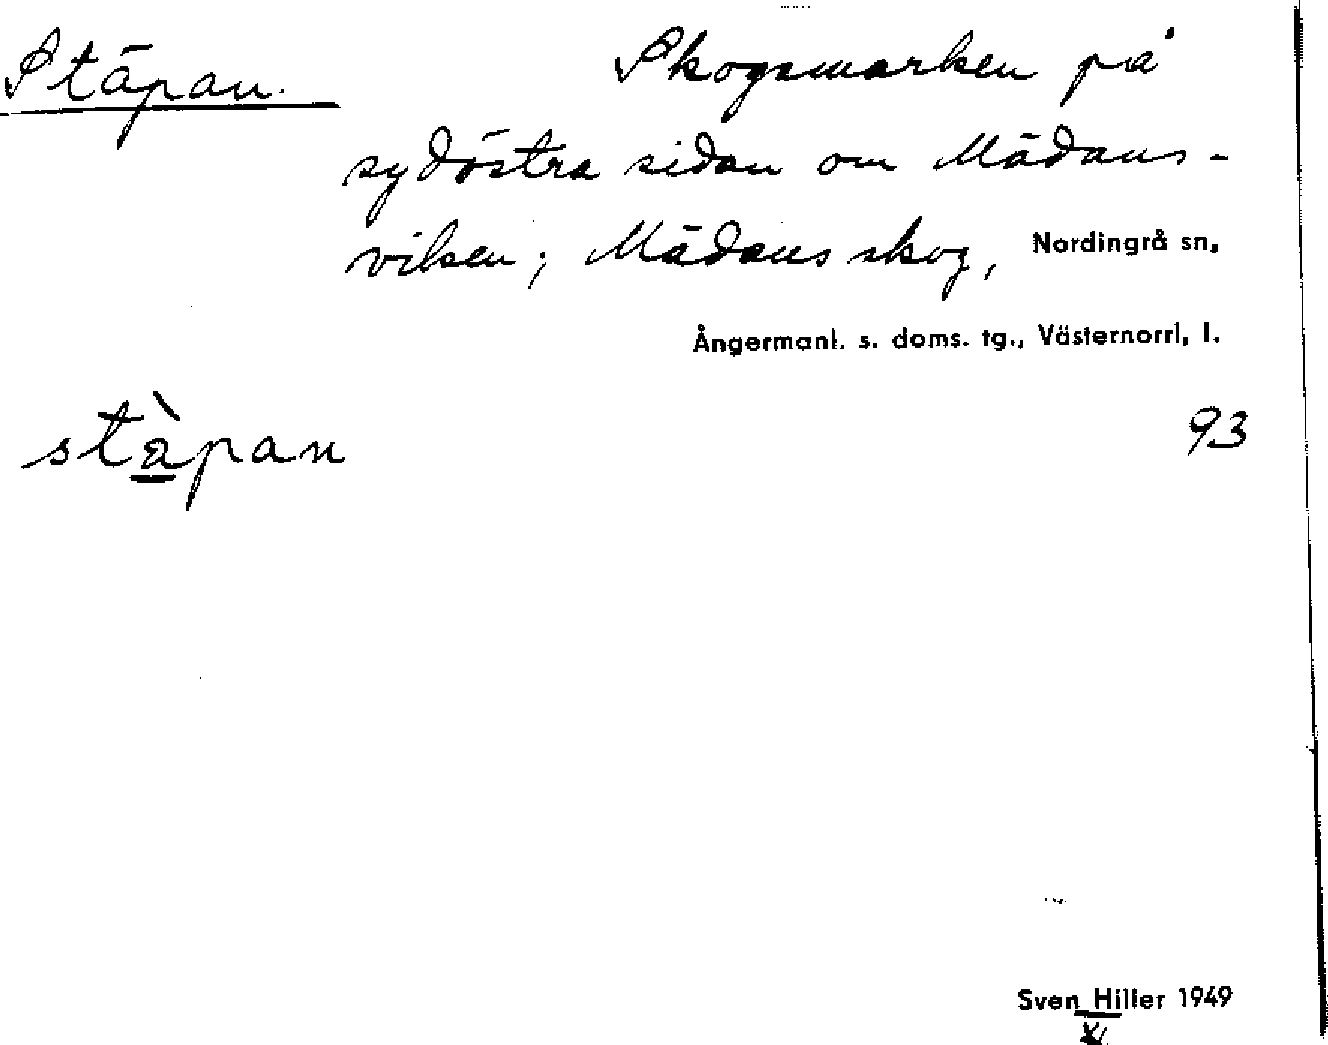 Stäpan. Skogsmarken på
sydöstra sidan om Mädans-
viken; Mädans skog, Nordingrå sn,
Ångermanl. s. doms. tg., Västernorrl, l.
stàpan 93
Sven Hiller 1949